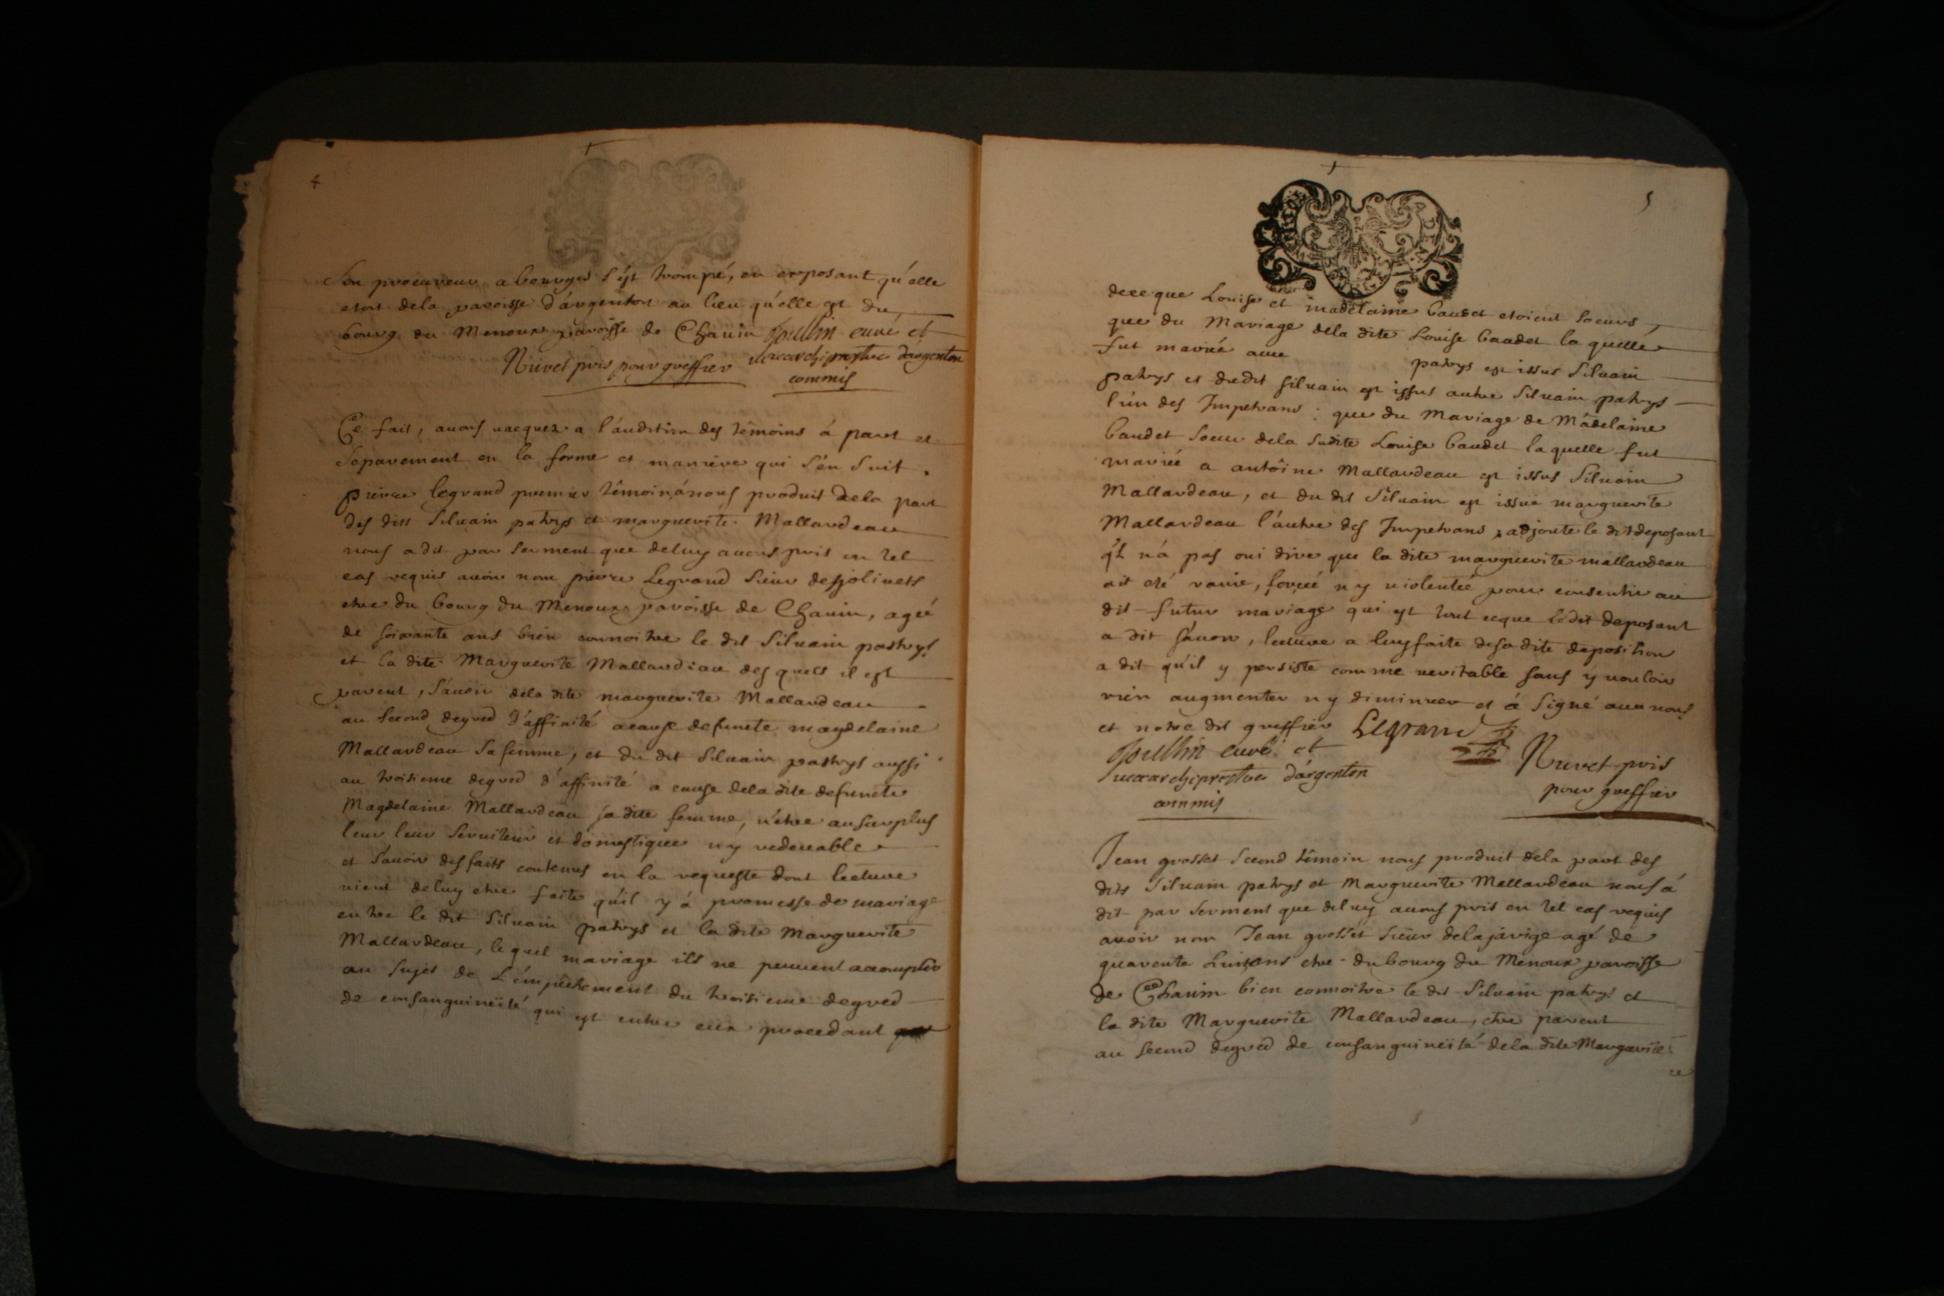 4
son procureur a bourges s'est trompé, en exposant qu'elle
etoit dela paroisse d'argenton au lieu qu'elle est du
bourg du Menoux paroisse de Chavin Poullin curé et
Nuret pris pour greffier vicearchiprestre d'argenton
commis
Ce fait, avons vacquez a l'audition des témoins á part et
séparement en la forme et maniere qui s'en suit.
pierre legrand premier témoin á nous produit dela part
des dits Silvain patrys et marguerite Mallardeau
nous a dit par serment que deluy avons pris en tel
cas requis avoir nom pierre Legrand sieur desjolivets
etre du bourg du Menoux paroisse de Chavin, agé
de soixante ans bien connoitre le dit Silvain patrys
et la dite Marguerite Mallardeau des quels il est
parent, sávoir dela dite marguerite Mallardeau
au second degred d'affinité acause defuncte magdelaine
Mallardeau sa femme, et du dit Silvain patrys aussi
au troisieme degred d'affinité a cause dela dite defuncte
Magdelaine Mallardeau sa dite femme, n'etre au surplus
leur leur serviteur et domestique ny redevable
et sávoir des faits contenus en la requeste dont lecture
vient deluy etre faite qu'il y á promesse de mariage
entre le dit Silvain patrys et la dite Marguerite
Mallardeau, lequel mariage ils ne peuvent accomplir
au sujet de L'émpéchement du troisieme degred
de consanguineité qui est entre eux procedant
5
dece que Louise et madelaine baudet etoient soeurs,
que du Mariage dela dite Louise baudet la quelle
fut mariée avec patrys est issus Silvain
patrys et dudit silvain est issus autre Silvain patrys
l'un des Impetrans : que du Mariage de Mádelaine
baudet soeur dela sudite Louise baudet laquelle fut
mariée a antoine Mallardeau est issus Silvain
Mallardeau, et du dit Silvain est issue marguerite
Mallardeau l'autre des Impetrans, adjoute le dit deposant
q'il n'a pas oui dire que la dite marguerite mallardeau
ait eté ravie, forcée ny violentée pour consentir au
dit futur mariage qui est tout ceque ledit deposant
a dit sávoir, lecture a luy faite desa dite deposition
a dit qu'il y persiste comme veritable sans y vouloir
rien augmenter ny diminuer et á signé avec nous
et notre dit greffier Legrand
Poullin curé et
vicearchiprestre d'argenton
commis
Nuret pris
pour greffier
Jean grosset second témoin nous produit dela part des
dits Silvain patrys et Marguerite Mallardeau nous á
dit par serment que deluy avons pris en tel cas requis
avoir nom Jean grosset sieur delajarige agé de
quarente huit ans etre du bourg du Menoux paroisse
de Chavin bien connoitre le dit Silvain patrys et
la dite Marguerite Mallardeau, etre parent
au second degred de consanguineité dela dite Marguerite